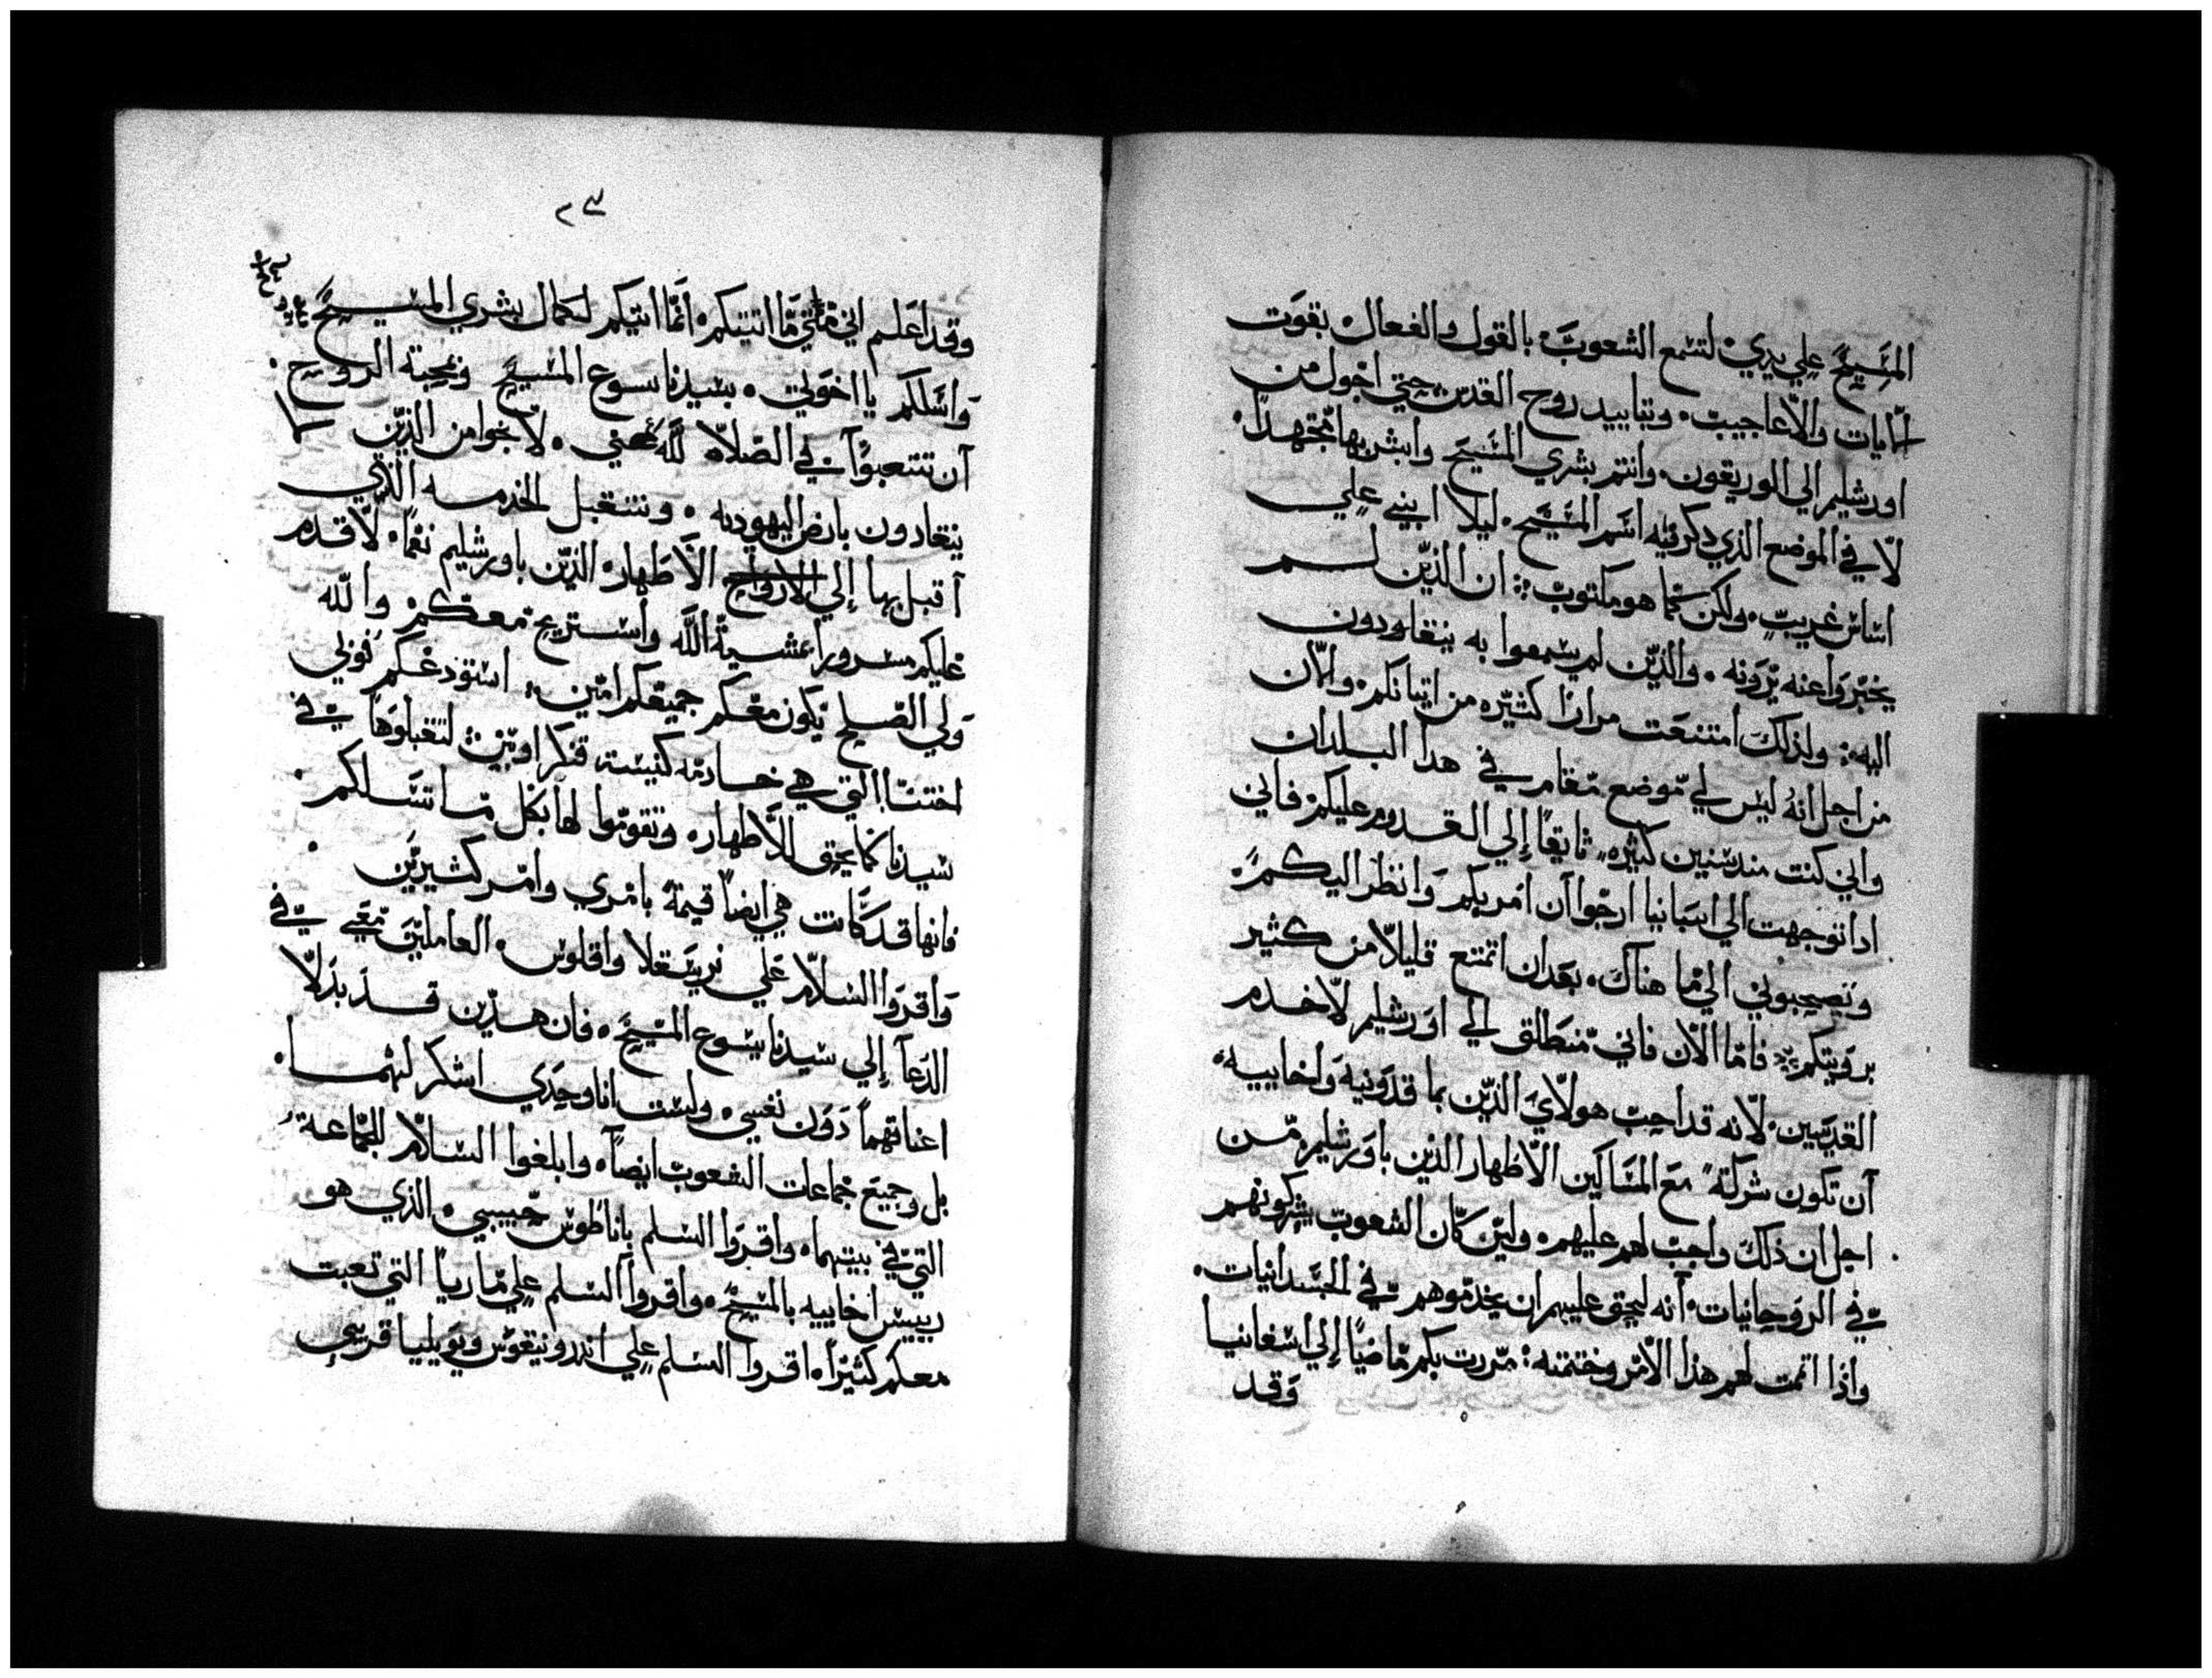 المسيح علي يدي لتسمع الشعوب بالقول والفعال بقوت
الايات والاعاجيب وبتاييد روح القدس حتي اجول من
اورشليم الي الوريقون وانتم بشري المسيح وابشر بها مجتهدا
لا في الموضع الذي ذكر فيه اسم المسيح ليلا ابني علي
اساس غريب ولكن كما هو مكتوب ان الذين لم
يخبروا عنه يرونه والذين لم يسمعوا به ينقاودون
اليه ولذلك امتنعت مرارا كثيره من اتيانكم والان
من اجل انه ليس لي موضع مقام في هدا البلدان
واني كنت مند سنين كثيره تايقا الي القدوم عليكم فاني
ادا توجهت الي اسبانيا ارجوا ان امر بكم وانظر اليكم
وتصحبوني الي ما هناك بعد ان اتمتع قليلا من كثير
برويتكم فاما الان فاني منطلق الي اورشليم لاخدم
القديسين لانه قد احب هولاي الذين بماقدونيه واخاييه
ان تكون شركة مع المساكين الاطهار الذين باورشليم من
اجل ان ذلك واجب لهم عليهم ولين كان الشعوب شركونهم
في الروحانيات انه ليحق عليهم ان يخدموهم في الجسدانيات
واذا اتممت لهم هذا الامر وختمته مررت بكم ماضيا الي اسفانيا
وقد
٢٣
وقد اعلم اني متي ما اتيتكم انما اتيكم لكمال بشري المسيح
واسلكم يا اخوتي بسيدنا يسوع المسيح وبمحبة الروح
ان تتعبوا في الصلاه لله عني لانجوا من الذين لا
ينقادون بارض اليهوديه وتتقبل الخدمه الذي
اقبل بها الي الارواح الاطهار الذين باورشليم نعما لاقدم
عليكم مسرورا بمشية الله واستريح معكم والله
ولي الصلح يكون معكم جميعكم امين استودعكم فوبي
اختنا التي هي خادمه كنيسة قنكراوس لتقبلوها في
سيدنا كما يحق للاطهار وتقوموا لها بكل ما تسلكم
فانها قد كانت هي ايضا قيمة بامري وامر كثيرين
واقروا السلام علي فرسقلا واقلوس العاملين معي في
الدعا الي سيدنا يسوع المسيح فان هذين قد بذلا
اعناقهما دون نفسي ولست انا وحدي اشكر لهما
بل وجميع جماعات الشعوب ايضا وابلغوا السلام للجماعة
التي في بيتهما واقروا السلم باناطوس حبيبي الذي هو
رييس اخاييه بالمسيح واقروا السلم علي ماريا التي تعبت
معكم كثيرا اقروا السلم علي اندرونيقوس ويويليا قريبي